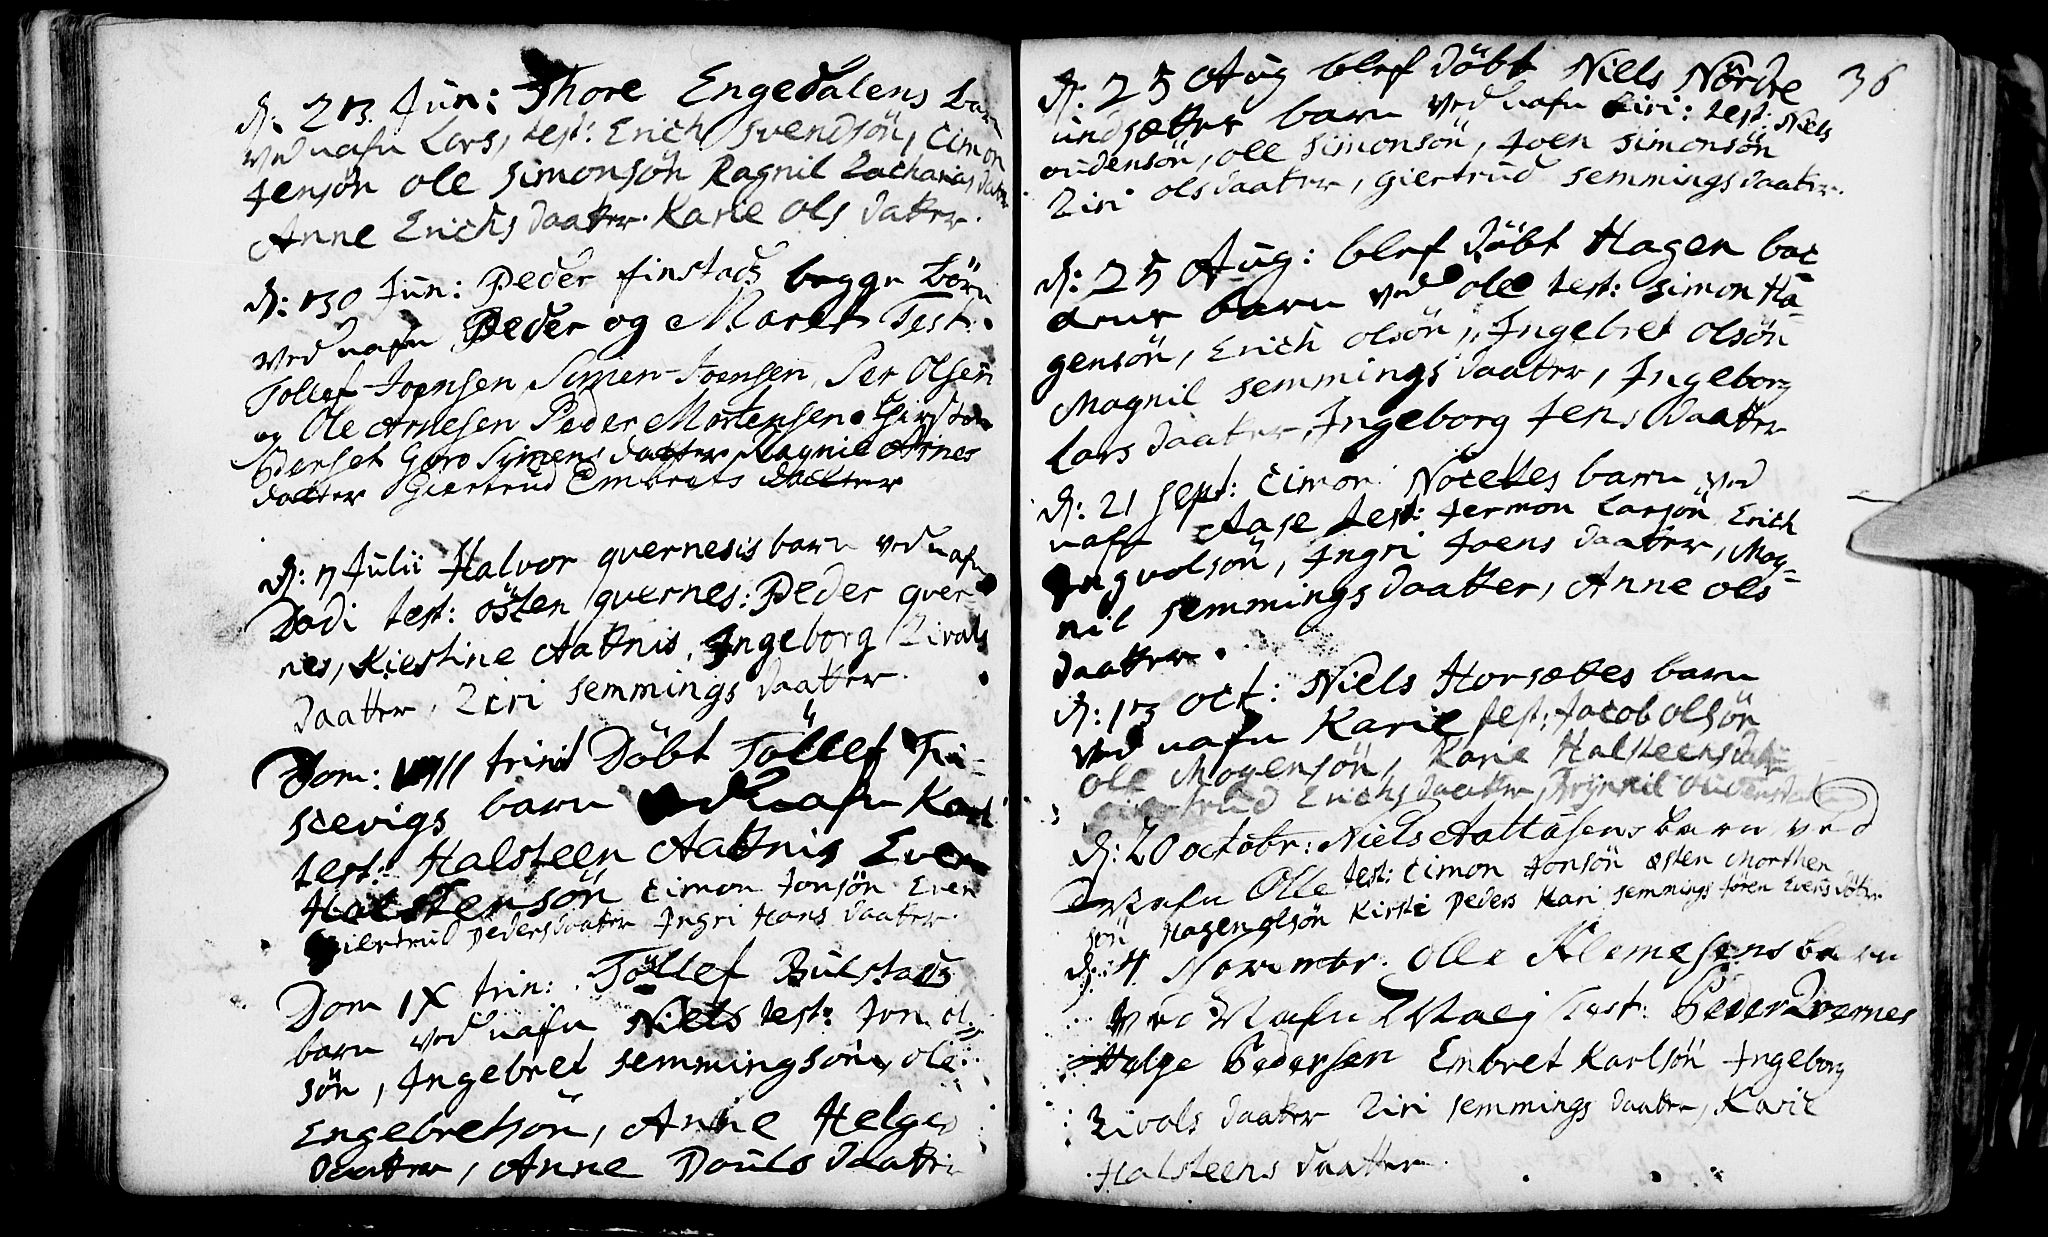 d: 23 Jun: Thore Engedalens barn
ved nafn Lars, test: Erich svendsön, Cimon
Jensön ole simonsön Ragnil Zacharias daater
Anne Erichs daatter. Karie ols datter.
d: 30 Jun: Peder finstads begge börn
ved nafn Peder og Maret Test:
Tollef Joensen, Simen Joensen, Per Olsen
og Ole Arnesen Peder Mortensen
Goro Symens datter Magnie Arnes
datter Giertrud Embrets datter
d: 7 Julii Halvor qvernesis barn ved nafn
Dodi test: östen qvernes: Peder qver
nes, Kiestine Aatnis, Ingeborg Zivals
daatter, Ziri semmings daatter.
Dom: VIII trinit Döbt Töllef Fri=
scevigs barn ved nafn Kari
test: Halsteen Aatnis Even
Halstensön Cimon Jonsön Even
Giertrud peders daatter Ingri Hans daatter.
Dom IX trin: Töllef Bülstads
barn ved nafn Niels test: Jon ol=
sön, Ingebret semmingsön, ole
Engebretsön, Anne Helges
daatter, Anne Pouls daatter
36
d: 25 Aug blef döbt Niels Nordre
undsætter barn ved nafn Ziri: test: Niels
oudensön, ole simonsön, Joen simonsön
Ziri ols daatter, giertrud semmings daatter.
d: 25 Aug: blef döbt Hagen bac
barn ved ole test: simon Ha=
gensön, Erich olsön, Ingebret olsön
Magnil semmings daatter, Ingeborg
Lars daatter, Ingeborg Jens daatter
d: 21 sept: Cimon barn ved
nafn Aase test: Jermon Larsön, Erich
Ingvolsön, Ingri Joens daatter, Mag=
nil semmings daatter, Anne ols
daatter.
d: 13 oct: Niels Horsættes barn
ved nafn Karie test: Jacob olsön
ole Mogensön, Karie Halsteens dat=
Giertrud Erichs daatter,
d: 20 octobr: Niels Aattasens barn ved
Nafn Olle test: Cimon Jonsön østen Morthen
sön Hagen olsön Kirsti peders Kari semmings Jören Evens döter
d: 4 Novembr: Olle Klemesens barn
ved Nafn test: Peder Qvernes
Helge Pedersen Embret Karlsön Ingeborg
Zivals daatter Ziri semmings daatter, Karie
Halsteens daatter.